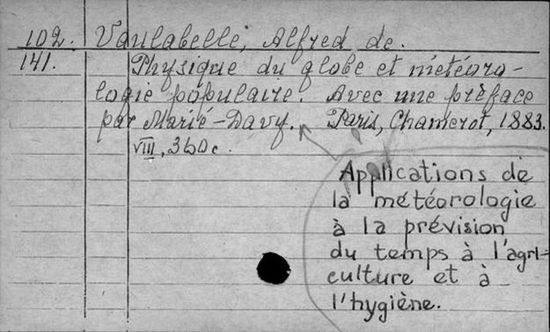 102. Vaulabelle, Alfred de.
141. Physique du globe et météoro-
logie populaire. Avec une préface
par Marié-Davy. Paris, Chamerot, 1883.
VIII, 360 c.
Applications de
la météorologie
à la prévision
du temps à l'agri-
culture et à
l'hygiène.